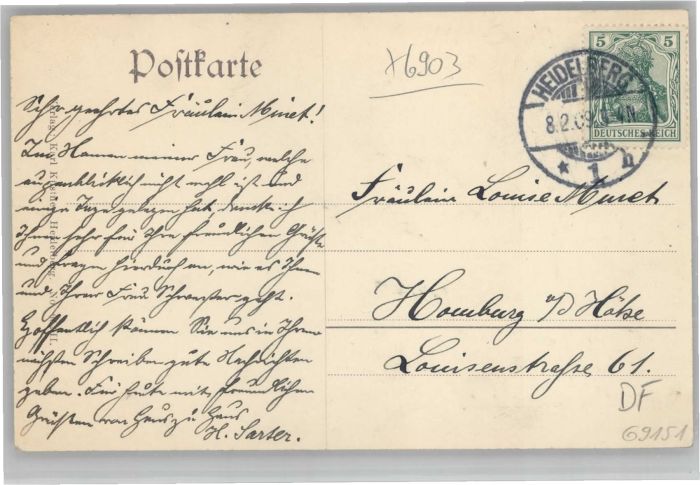 Postkarte
x6903
Sehr geehrtes Fräulein Minet!
Im Namen meiner Frau, welche
augenblicklich nicht wohl ist und
einige Tage gelegen hat, danke ich
Ihnen sehr für Ihre freundlichen Grüße
und fragen hierdurch an, wie es Ihnen
und Ihrer Frau Schwester geht.
Hoffentlich können Sie uns in Ihrem
nächsten Schreiben gute Nachrichten
geben. Für heute mit freundlichen
Grüßen von Haus zu Haus
H. Sarter.
5 5
DEUTSCHES REICH
HEIDELBERG
8.2.09. 4N
* 1 n
Fräulein Louise Minet
Homburg v/d Höhe
Louisenstrasse 61.
DF
69151